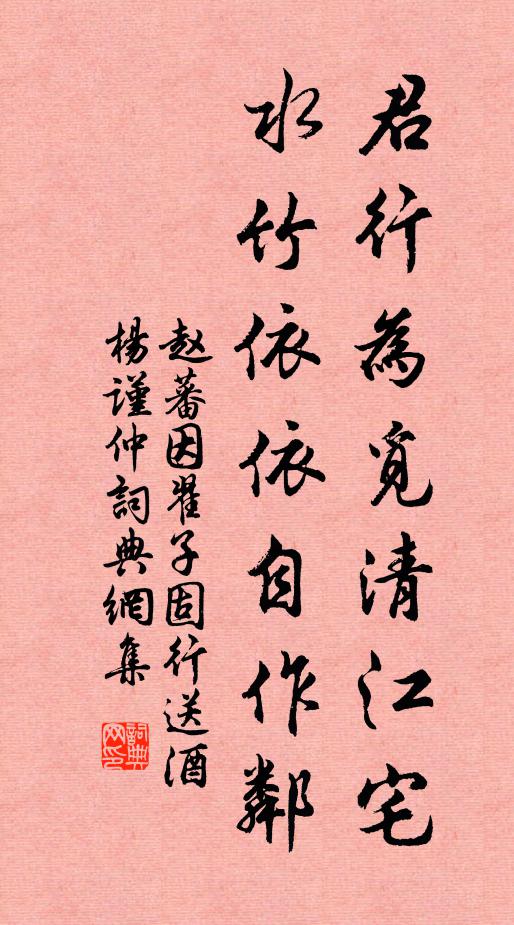 君行為覓清江宅
水竹依依自作鄰
赵蕃因瞿子固行送酒
楊謹仲詞典網集
詞典网印